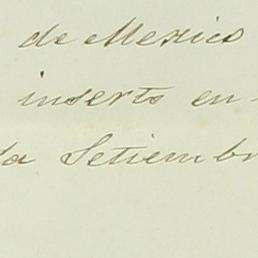 de Mexico
inserto en-
la Setiembr